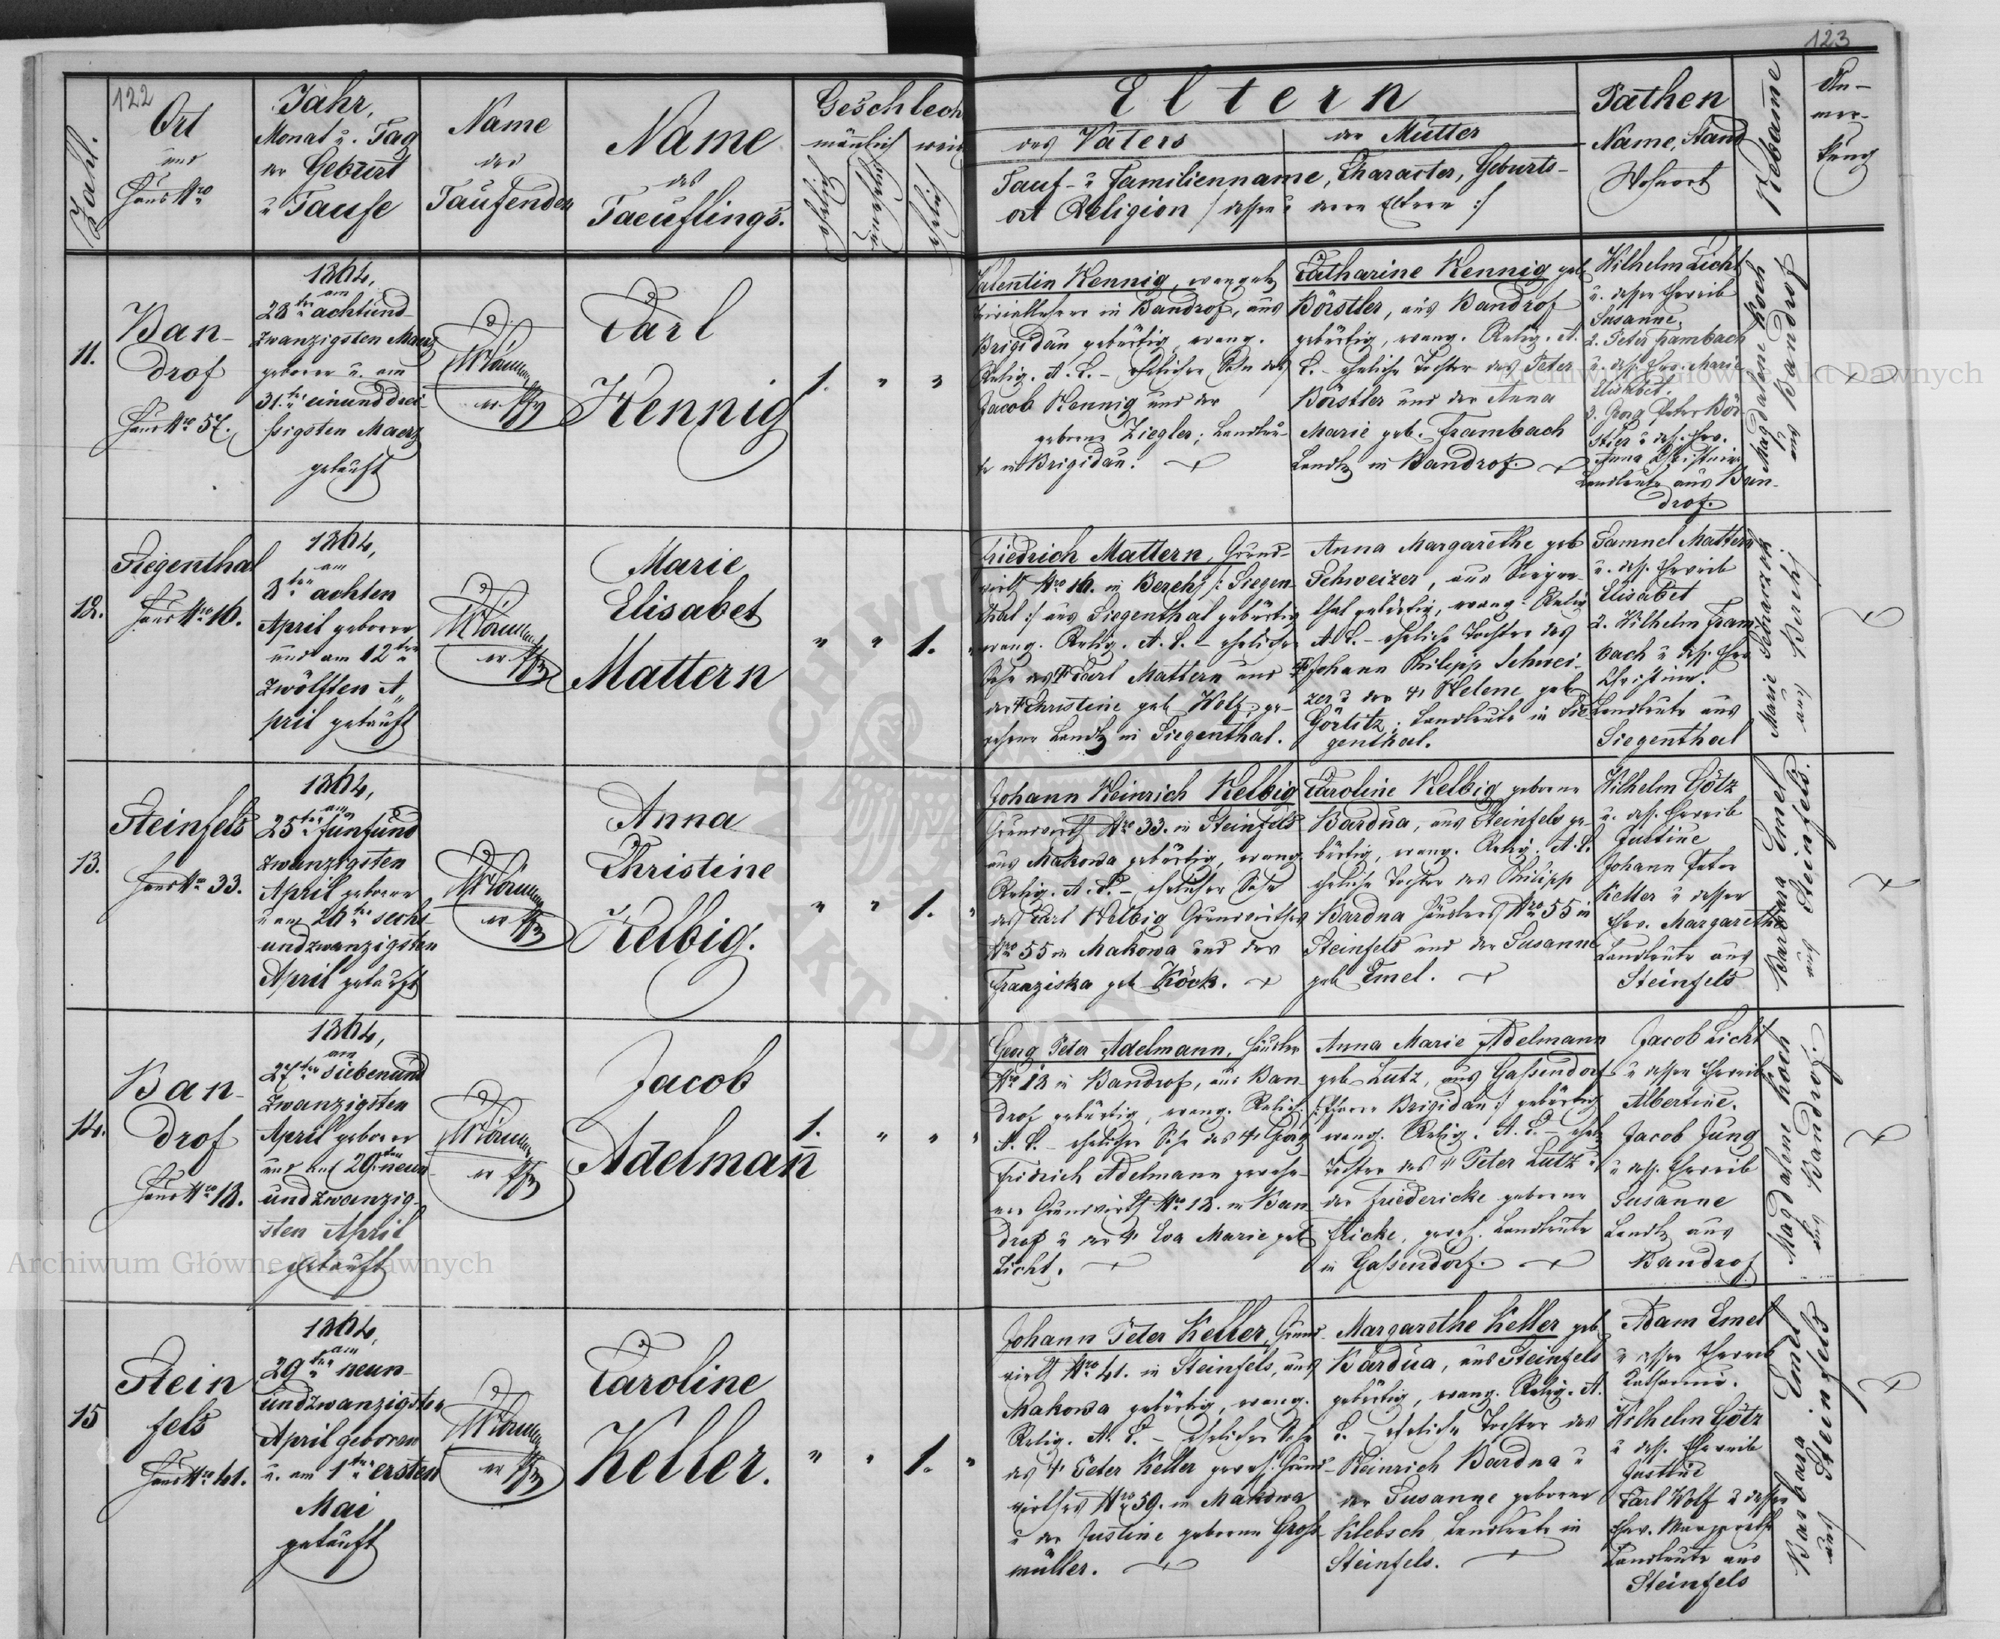 122
123
Zahl.
Ort
und
Haus Nro
Jahr,
Monat u. Tag
der Geburt
u Taufe
Name
des
Taufenden
Name
des
Taeuflings.
Geschlech
männlich
weib
Eltern
des Vaters
der Mutter
Tauf- u Familienname, Character, Geburts-
ort Religion /: dessen u deren Eltern :/
Pathen
Name, Stand
Wohnort
Hebamme
An-
mer-
kung
11.
Ban-
drof
Haus Nro 57.
1864,
am
28ten achtund
zwanzigsten Maerz
geboren u. am
31.ten einunddrei-
ssigsten Maerz
getauft
Carl
Hennig
1. " "
Valentin Hennig, evangel.
in Bandrof, aus
Brigidau gebürtig, evang.
Relig. A. C. - ehelicher Sohn des
Jacob Hennig und der
geborne Ziegler, Landleu-
te in Brigidau.
Catharine Hennig geb.
Börstler, aus Bandrof
gebürtig, evang. Relig. A.
C. - eheliche Tochter des Peter
Börstler und der Anna
Marie geb. Frambach
Landl. in Bandrof.
Wilhelm Licht
u. dessen Eheweib
Susanne,
2. Peter Frambach
u. dess. Ehew. Marie
Elisabet.
3. Georg Peter Bör-
stler u. dess. Ehew.
Anna Christine
Landleute aus Ban-
drof.
Magdalene Koch
aus Bandrof
12.
Siegenthal
Haus Nro 16.
1864,
am
8ten achten
April geboren
und am 12ten
zwölften A„
pril getauft
Marie
Elisabet
Mattern
" " 1. "
Friedrich Mattern, Grund-
wirth Nro 16. in Bereh /: Siegen-
thal :/ aus Siegenthal gebürtig
evang. Relig. A. C. - ehelicher
Sohn des † Carl Mattern und
der † Christine geb. Wolf, ge-
wesene Landl. in Siegenthal.
Anna Margarethe geb
Schweizer, aus Siegen-
thal gebürtig, evang. Relig
A. C. - eheliche Tochter des
† Johann Philipp Schwei-
zer u der † Helene geb
Görlitz, Landleute in Sie-
genthal.
Samuel Mattern
u. dess. Eheweib
Elisabet
2. Wilhelm Fram
bach u dess. Ehew
Christine.
Landleute aus
Siegenthal
Marie
aus Bereh.
13.
Steinfels
Haus Nro 33.
1864,
am
25ten fünfund
zwanzigsten
April geboren
u am 26ten sechs
undzwanzigsten
April getauft
Anna
Christine
Helbig.
" " 1. "
Johann Heinrich Helbig
Grundwirth Nro 33. in Steinfels
aus Makowa gebürtig, evang.
Relig. A. C. - ehelicher Sohn
des Carl Helbig Grundwirthes
Nro 55 in Makowa und der
Franziska geb Köck.
Caroline Helbig geborne
Bardua, aus Steinfels ge-
bürtig, evang. Relig. A. C.
eheliche Tochter des Philipp
Bardua Häuslers Nro 55 in
Steinfels und der Susanne
geb Emel.
Wilhelm Götz
u. dess. Eheweib
Justine
Johann Peter
Keller u dessen
Ehew. Margarethe
Landleute aus
Steinfels
Barbara Emel
aus Steinfels.
14.
Ban-
drof
Haus Nro 18.
1864,
am
27ten siebenund
zwanzigsten
April geboren
und am 29ten neun
undzwanzig-
sten April
getauft
Jacob
Adelmann
1. " " "
Georg Peter Adelmann, Häusler
Nro 18 in Bandrof, aus Ban-
drof gebürtig, evang. Relig.
A. C. - ehelicher Sohn des † Georg
Fridrich Adelmann gewese-
nen Grundwirth Nro 18. in Ban
drof u der † Eva Marie geb
Licht.
Anna Marie Adelmann
geb. Lutz, aus Gassendorf
/: Pfarre Brigidau :/ gebürtig
evang. Relig. A. C. - ehel.
Tochter des † Peter Lutz u
der Friedericke geborne
Fricke, gewes. Landleute
in Gassendorf.
Jacob Licht
u dessen Eheweib
Albertine.
Jacob Jung
u dess. Eheweib
Susanne
Landl. aus
Bandrof
Magdalene Koch
aus Bandrof.
15
Stein
fels
Haus Nro 41.
1864,
am
29ten neun-
undzwanzigsten
April geboren
u. am 1ten ersten
Mai
getauft
Caroline
Keller.
" " 1. "
Johann Peter Keller, Grund-
wirth Nro 41. in Steinfels, aus
Makowa gebürtig, evang.
Relig. A. C. - ehelicher Sohn
des † Peter Keller gewes. Grund-
wirthes Nro 59. in Makowa
u der Justine geborne Gross
müller.
Margarethe Keller geb.
Bardua, aus Steinfels
gebürtig, evang. Relig. A.
C. - eheliche Tochter des
Heinrich Bardua u
der Susanne geborne
Klebsch Landleute in
Steinfels.
Adam Emel
u dessen Eheweib
Katharine.
Wilhelm Götz
u dess. Eheweib
Justine
Carl Wolf u dessen
Ehew. Margarethe
Landleute aus
Steinfels
Barbara Emel
aus Steinfels
Archiwum Główne Akt Dawnych
Archiwum Główne Akt Dawnych
ARCHIWUM
AKT DAWNYCH